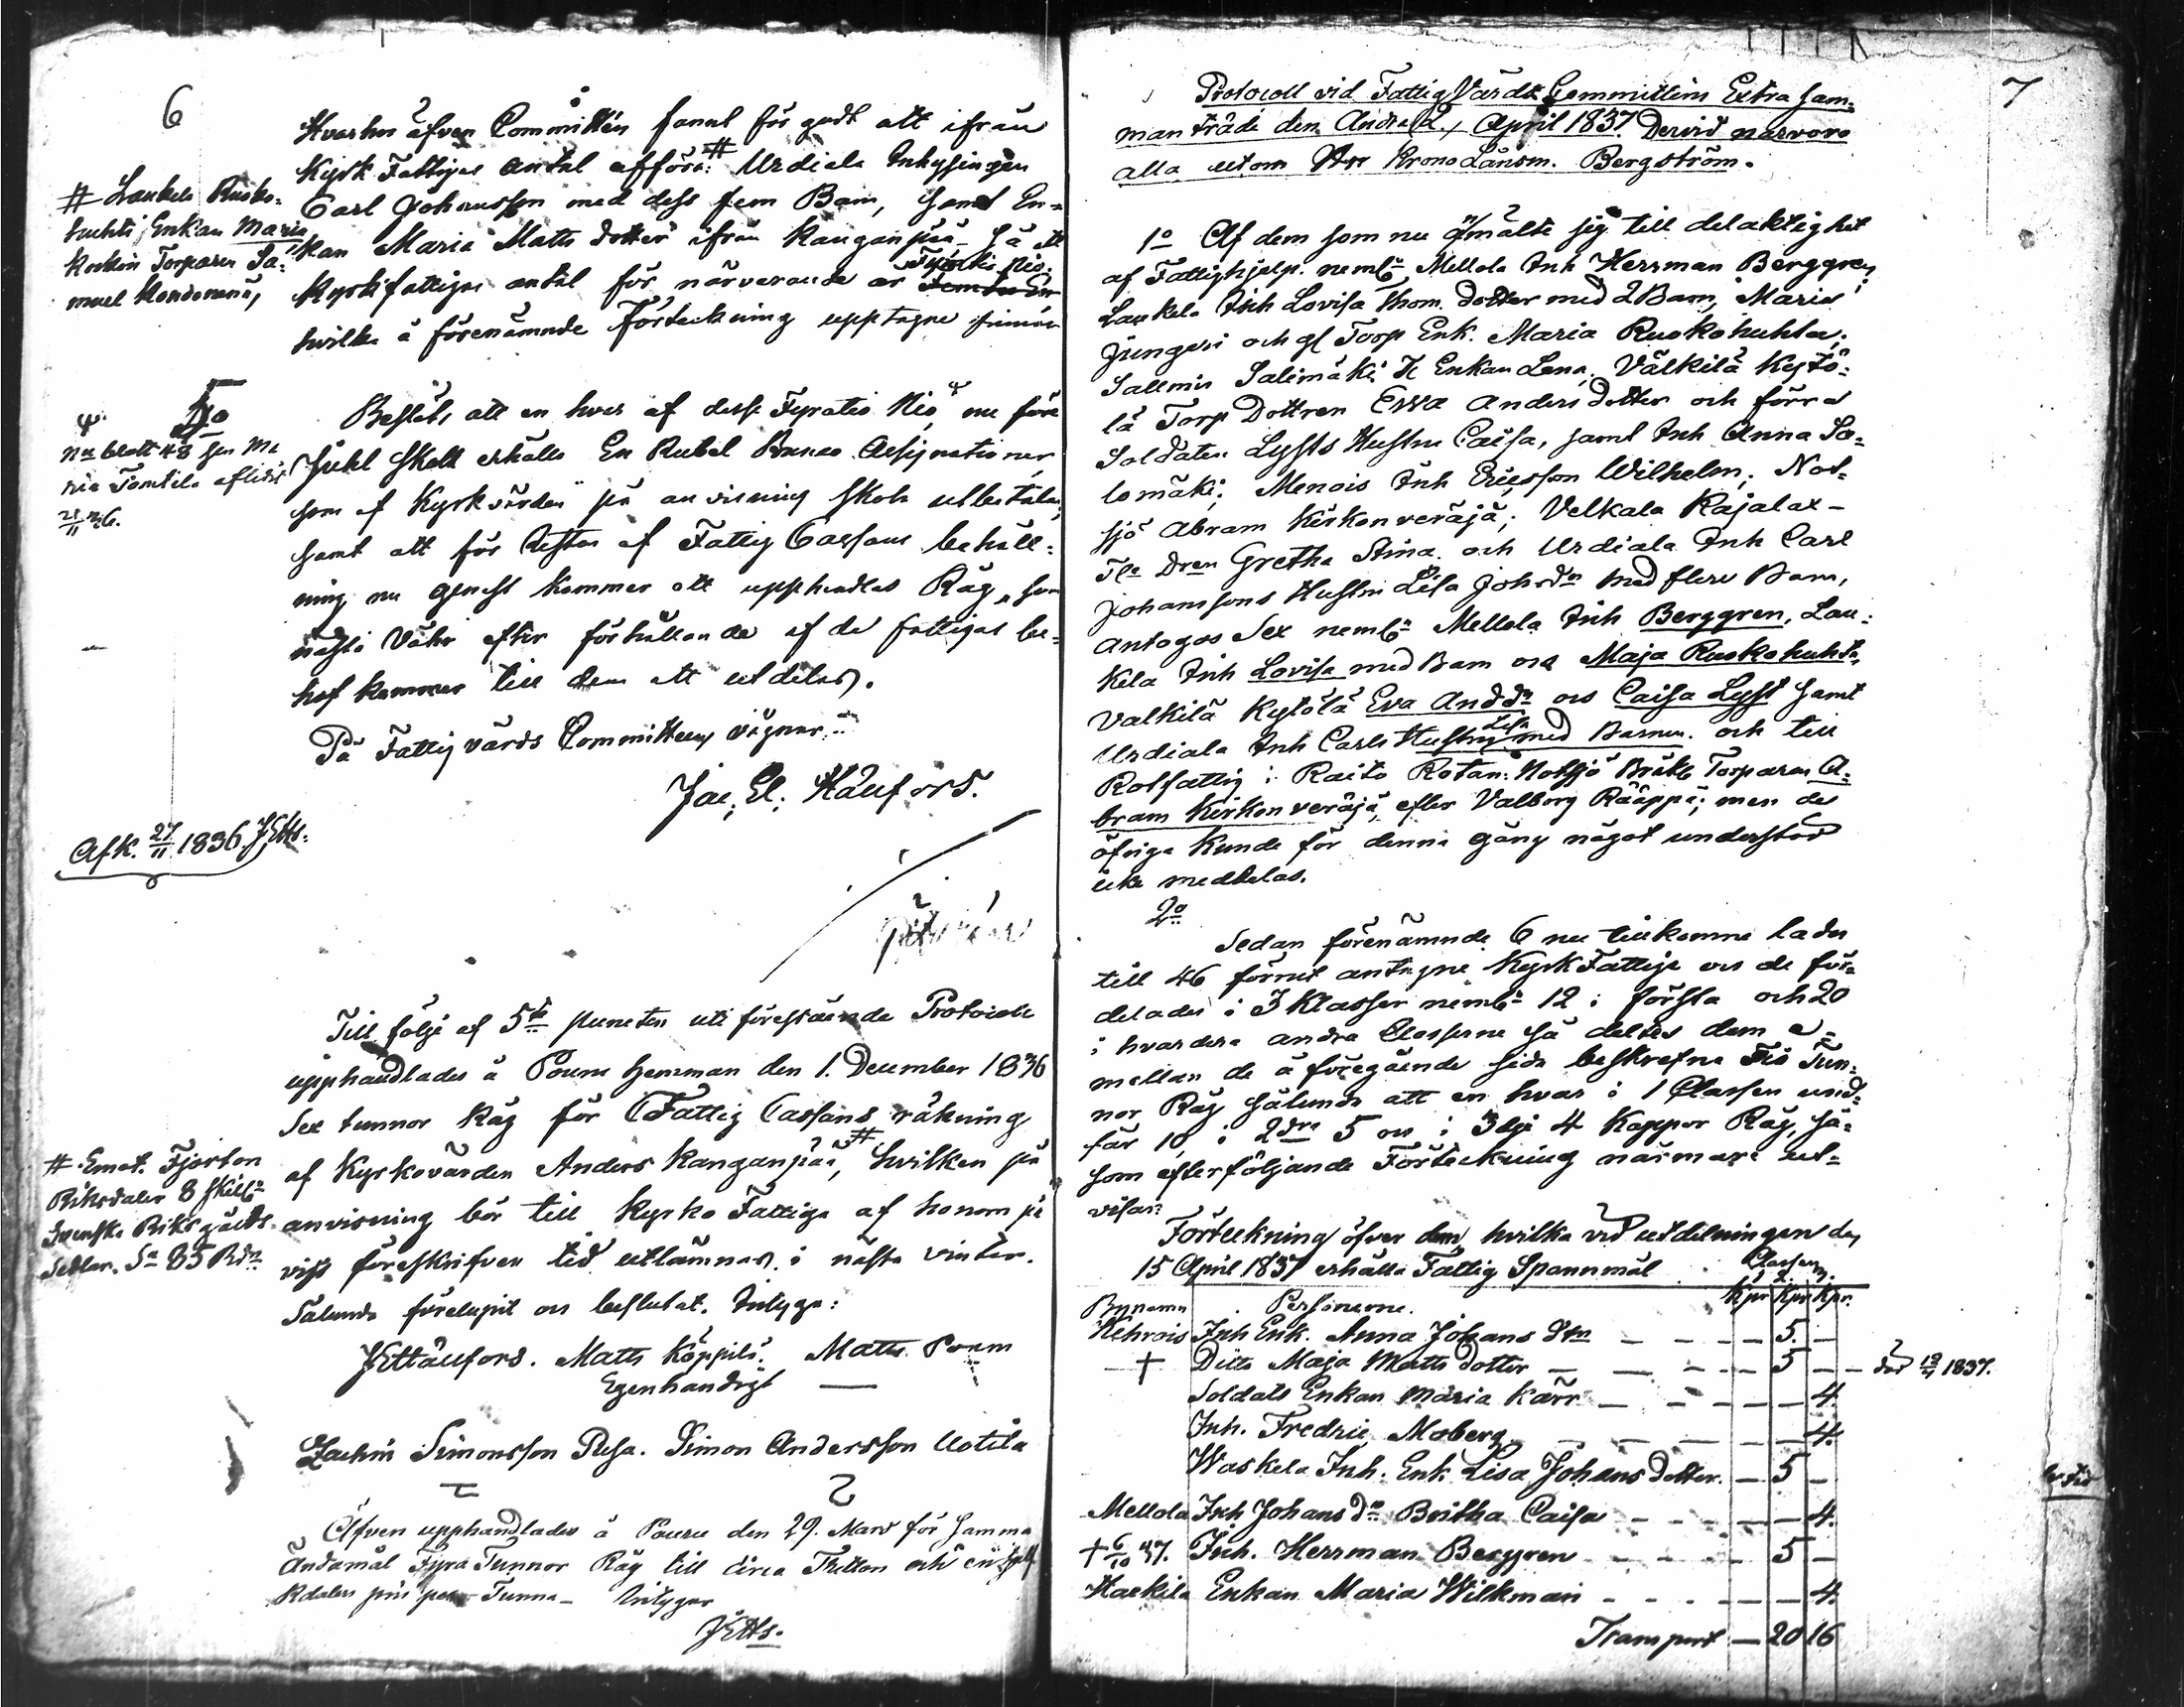 6
Hvarhos äfven Committén fannt för godt att ifrån
Kyrk Fattiges antal afföra:# Urdiala Inhysingen
Carl Johansson med dess fem Barn, samt En-
kan Maria Matts dotter ifrån Kanganpää. Så att
Kyrkfattiges antal för närvarande är
hvilka å förenämnde Förteckning upptagne finnas
# Laukela Rusko-
huhti Enkan Maria
Torparen Sa-
muel
5:o
Beslöts att en hvar af desse Fyratio Nio, nu före
Juhl skall erhålla En Rubel Banco Assignationer
som af Kyrkvärden på anvisning skola utbetalas,
samt att för Resten af Fattig Cassans behåll-
ning nu genast kommer att upphandlas Råg, som
nästa Vår efter förhållande af de fattigas be-
hof kommer till dem att utdelas.
Nu blott 48 sen Ma
ria Tomtila aflidit
På Fattigvårds Committéens vägnar:
Jac. El. Häufors.
Afk. 27/11 1836. JEHs.
Till följe af 5te puncten uti förestående Protocoll
upphandlades å Pounu hemman den 1. December 1836
Sex tunnor Råg för Fattig Cassans räkning
af Kyrkovärden Anders Kanganpää,# hvilken på
anvisning bör till Kyrko Fattige af honom på
viss föreskrifven tid utlämnas i nästa vinter.
Sålunda förelupit och beslutat. Intyga:
# Emot Fjorton
Riksdaler 8 skill:
Svenska Riksgälds
Sedlar. Sa 85 Rdr
JEHäufors. Matts Köppilä. Matts Pounu
Egenhändigt
Zachris Simonsson Pusa. Simon Andersson Uotila
Äfven upphandlades å Pounu den 29. Mars för samma
Ändamål Fyra Tunnor Råg till circa Thretton och en half
Rdalers pris per Tunna - Intygar
JEHs.
7
Protocoll vid Fattig Vårds Committéns Extra sam-
manträde den Andra 2, April 1837. Dervid närvoro
alla utom Herr Krono Länsm. Bergström.
1o Af dem som nu anmälte sig till delaktighet
af Fattighjelp. neml: Mellola Inh Herrman Berggren,
Laukela Inh Lovisa Thom. dotter med 2 Barn, Maria
Jungeri och gl Torp Enk. Maria Ruokohuhta;
Sallmis Salimäki Enkan Lena, Välkilä Kytö-
lä Torp Dottren Ewa Anders dotter och förra
Soldaten Lysts Hustru Caisa, samt Inh Anna Sa-
lomäki; Menois Inh Ericsson Wilhelm; Not-
sjö Abram Kirkonveräjä; Velkala Rajalax-
Dren Gretha Stina och Urdiala Inh Carl
Johanssons Hustru Lisa Johsdr med flere Barn,
Antogos Sex neml: Mellola Inh Berggren, Lau-
kela Inh Lovisa med Barn och Maja Ruokohuhta,
Valkilä Kytölä Eva Andds och Caisa Lyst samt
Urdiala Inh Carls Hustru Lisa med Barnen. och till
Rotfattig i Raito Rotan: Notsjö Bräkl. Torparen A-
bram Kirkonveräjä, efter Valborg Rääppä; men de
öfriga kunde för denna gång något understöd
icke meddelas.
2o
Sedan förenämnde 6 nu tillkomne lades
till 46 förrut antagne Kyrk Fattige och de för-
delades i 3 Klasser neml: 12 i första och 20
i hvardera andra Classerne så deltes dem e-
mellan de å föregående sida beskrefne Tio Tun-
nor Råg sålunda att en hvar i 1 Classen und-
får 10, i 2dra 5 och i 3dje 4 Kappor Råg, så-
som efterföljande Förteckning närmare ut-
visar:
Förteckning öfver dem, hvilka vid utdelningen den
15 April 1837 erhålla Fattig Spannmål Classen
Bynamn Personerne. Kpr Kpr Kpr.
Kehrois Inh Enk. Anna Johans Dtr — — — 5. —
† Ditto Maja Matts dotter — — — 5 — — död 19/4 1837.
Soldats Enkan Maria Kärr — — — 4.
Inh. Fredric Moberg — — — 4.
Waskela Inh. Enk Lisa Johans dotter. — 5 —
Mellola Inh Johans dr Britha Caisa — — — 4.
† 6/10 37. Inh. Herrman Berggren — — — 5 —
Haekilä Enkan Maria Wilkman — — — 4.
Transport — 20 16